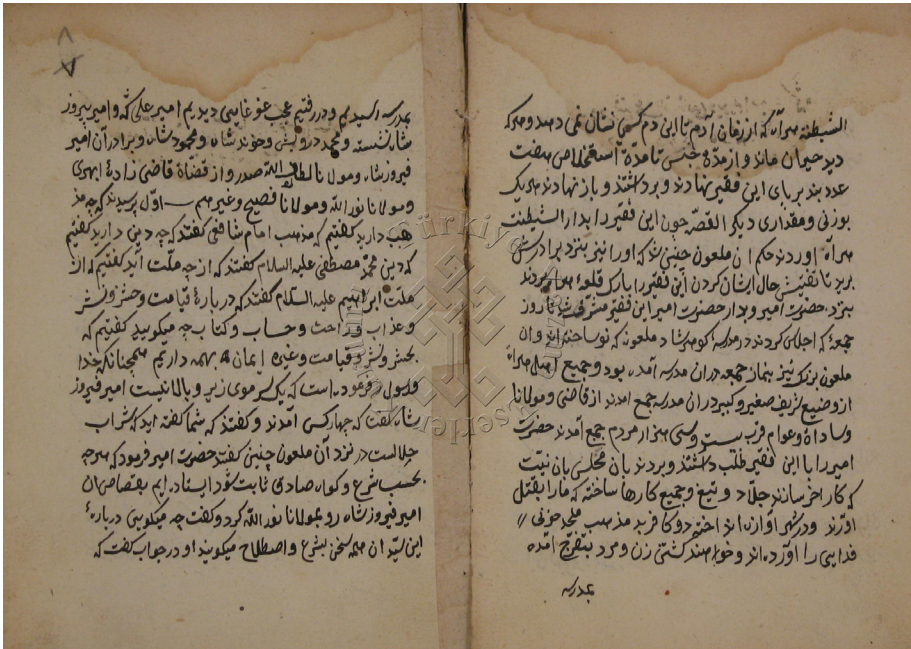 الشیطنه هراة که از زمان آدم تا این دم کسی نشان نمی دهد و هر که
دید حیران ماند و از مدة حبس تا مدة هفت
عدد بند بر پای این فقیر نهادند و برداشتند و باز نهادند هر یک
بوزنی و مقداری دیگر القصه چون این فقیر را بدار الشیطنت
هراة آوردند حکم آن ملعون چنین شد که او را نیز بنزد برادرش
برید تا تفتیش حال ایشان کردن این فقیر را بارک قلعه هراة بردند
بنزد حضرت امیر و بدیدار حضرت امیر این فقیر مشرف شد تا روز
جمعة که اجلاس کردند در مدرسه کوهرشاد ملعونه که نو ساخته اند و آن
ملعون بزرک نیز بنماز جمعه در آن مدرسه آمده بود و جمیع اهل هراة
از وضیع و شریف صغیر و کبیر در آن مدرسه جمع آمدند از قاضی و مولانا
و سادات و عوام قرب بیست و سی هزار مردم جمع آمدند حضرت
امیر را با این فقیر طلب داشتند و بردند بآن مجلس بآن نیت
که کار آخر سازند جلاد و تیغ و جمیع کارها ساخته که ما را بقتل
آورند و در شهر آوازه انداخته دو کافر بد مذهب ملحد خونی
فدایی را آورده اند و خواهند کشتن زن و مرد بتفرج آمده
بمدرسه
بمدرسه رسیدیم و در رفتیم عجب غوغایی دیدیم امیر علی که و امیر فیروز
شاه نشسته و محمد درویش و خوند شاه و محمود شاه و برادران امیر
فیروز شاه و مولانا لطف الله صدر و از قضاة قاضی زاده ابهری
و مولانا نور الله و مولانا فصیح و غیرهم اول پرسیدند که چه مذ
هب دارید کفتیم که مذهب امام شافعی کفتند که چه دین دارید کفتیم
که دین محمد مصطفی علیه السلام کفتند که از چه ملت آید کفتیم که از
ملت ابراهیم علیه السلام کفتند که در بارۀ قیامت و حشر و نشر
و عذاب و راحت و حساب و کتاب چه میکویید کفتیم که
بحشر و نشر و قیامت و غیره ایمان بهمه داریم همچنانکه خدا
و رسول فرموده است که یک سر موی زیر و بالا نیست امیر فیروز
شاه کفت که چهار کس آمدند و کفتند که شما کفته اید که شراب
حلالست در نزد آن ملعون چنین کفتند حضرت امیر فرمود که هر چه
بحسب شرع و کواه صادق ثابت شود ایستاده ایم بقصاص آن
امیر فیروز شاه رو بمولانا نور الله کرد و کفت چه میکویی دربارۀ
این سید ان همه سخن بشرع و اصطلاح میکویند او در جواب کفت که